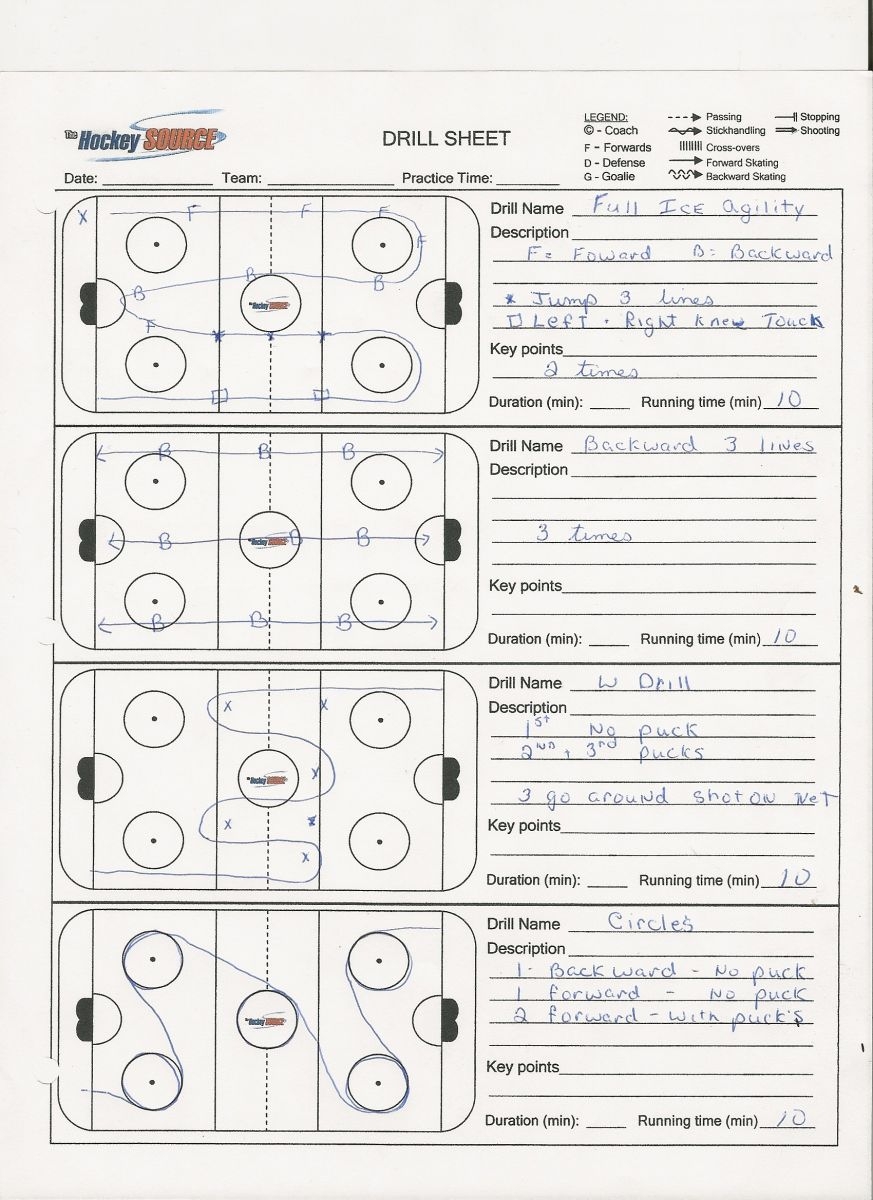 The Hockey SOURCE
DRILL SHEET
LEGEND:
© - Coach
F - Forwards
D - Defense
G - Goalie
Passing
Stickhandling
Cross-overs
Forward Skating
Backward Skating
Stopping
Shooting
Date: Team: Practice Time:
X F F F
F
B B B
F
The Hockey SOURCE
Drill Name Full Ice agility
Description
F= Foward B= Backward
* Jump 3 lines
□ Left - Right knew Touck
Key points
2 times
Duration (min): Running time (min) 10
B B B
B B B
B B B
The Hockey SOURCE
Drill Name Backward 3 lines
Description
3 times
Key points
Duration (min): Running time (min) 10
X X
X
X X
X
The Hockey SOURCE
Drill Name W Drill
Description
1st No puck
2nd + 3rd pucks
3 go around shot on net
Key points
Duration (min): Running time (min) 10
The Hockey SOURCE
Drill Name Circles
Description
1- Backward - No puck
1 forward - No puck
2 forward - with puck's
Key points
Duration (min): Running time (min) 10